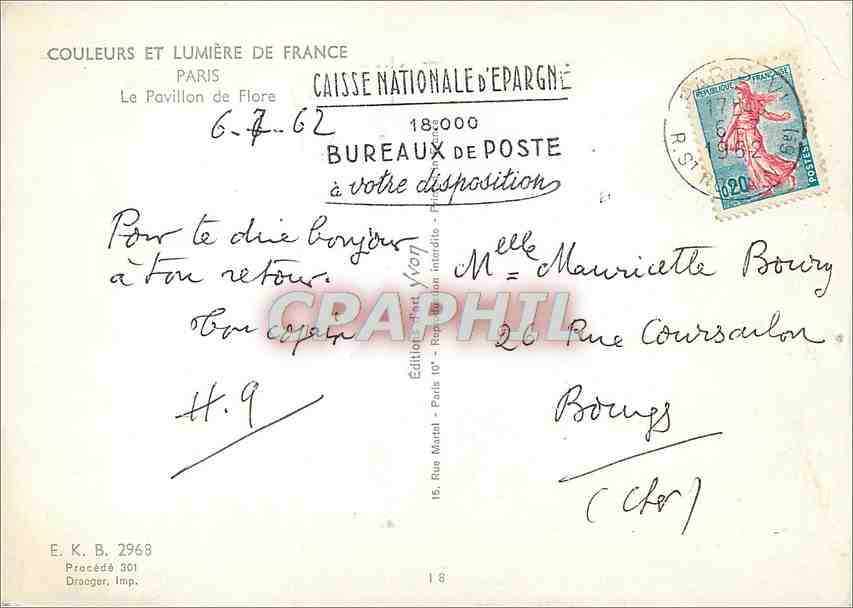 COULEURS ET LUMIÈRE DE FRANCE
PARIS
Le Pavillon de Flore
CAISSE NATIONALE D'EPARGNE
18.000
BUREAUX DE POSTE
à votre disposition
REPUBLIQUE FRANÇAISE
17H45
6
1962
R. St
0,20
POSTES
6-7-62
Pour te dire bonjour
à ton retour.
Ton copain
H. 9
Melle Mauricette Boury
26 Rue Coursarlon
Bourges
(Cher)
CPAPHIL
Editions d'art Yvon
15, Rue Martel - Paris 10e - Reproduction interdite -
E. K. B. 2968
Procédé 301
Draeger, Imp.
18